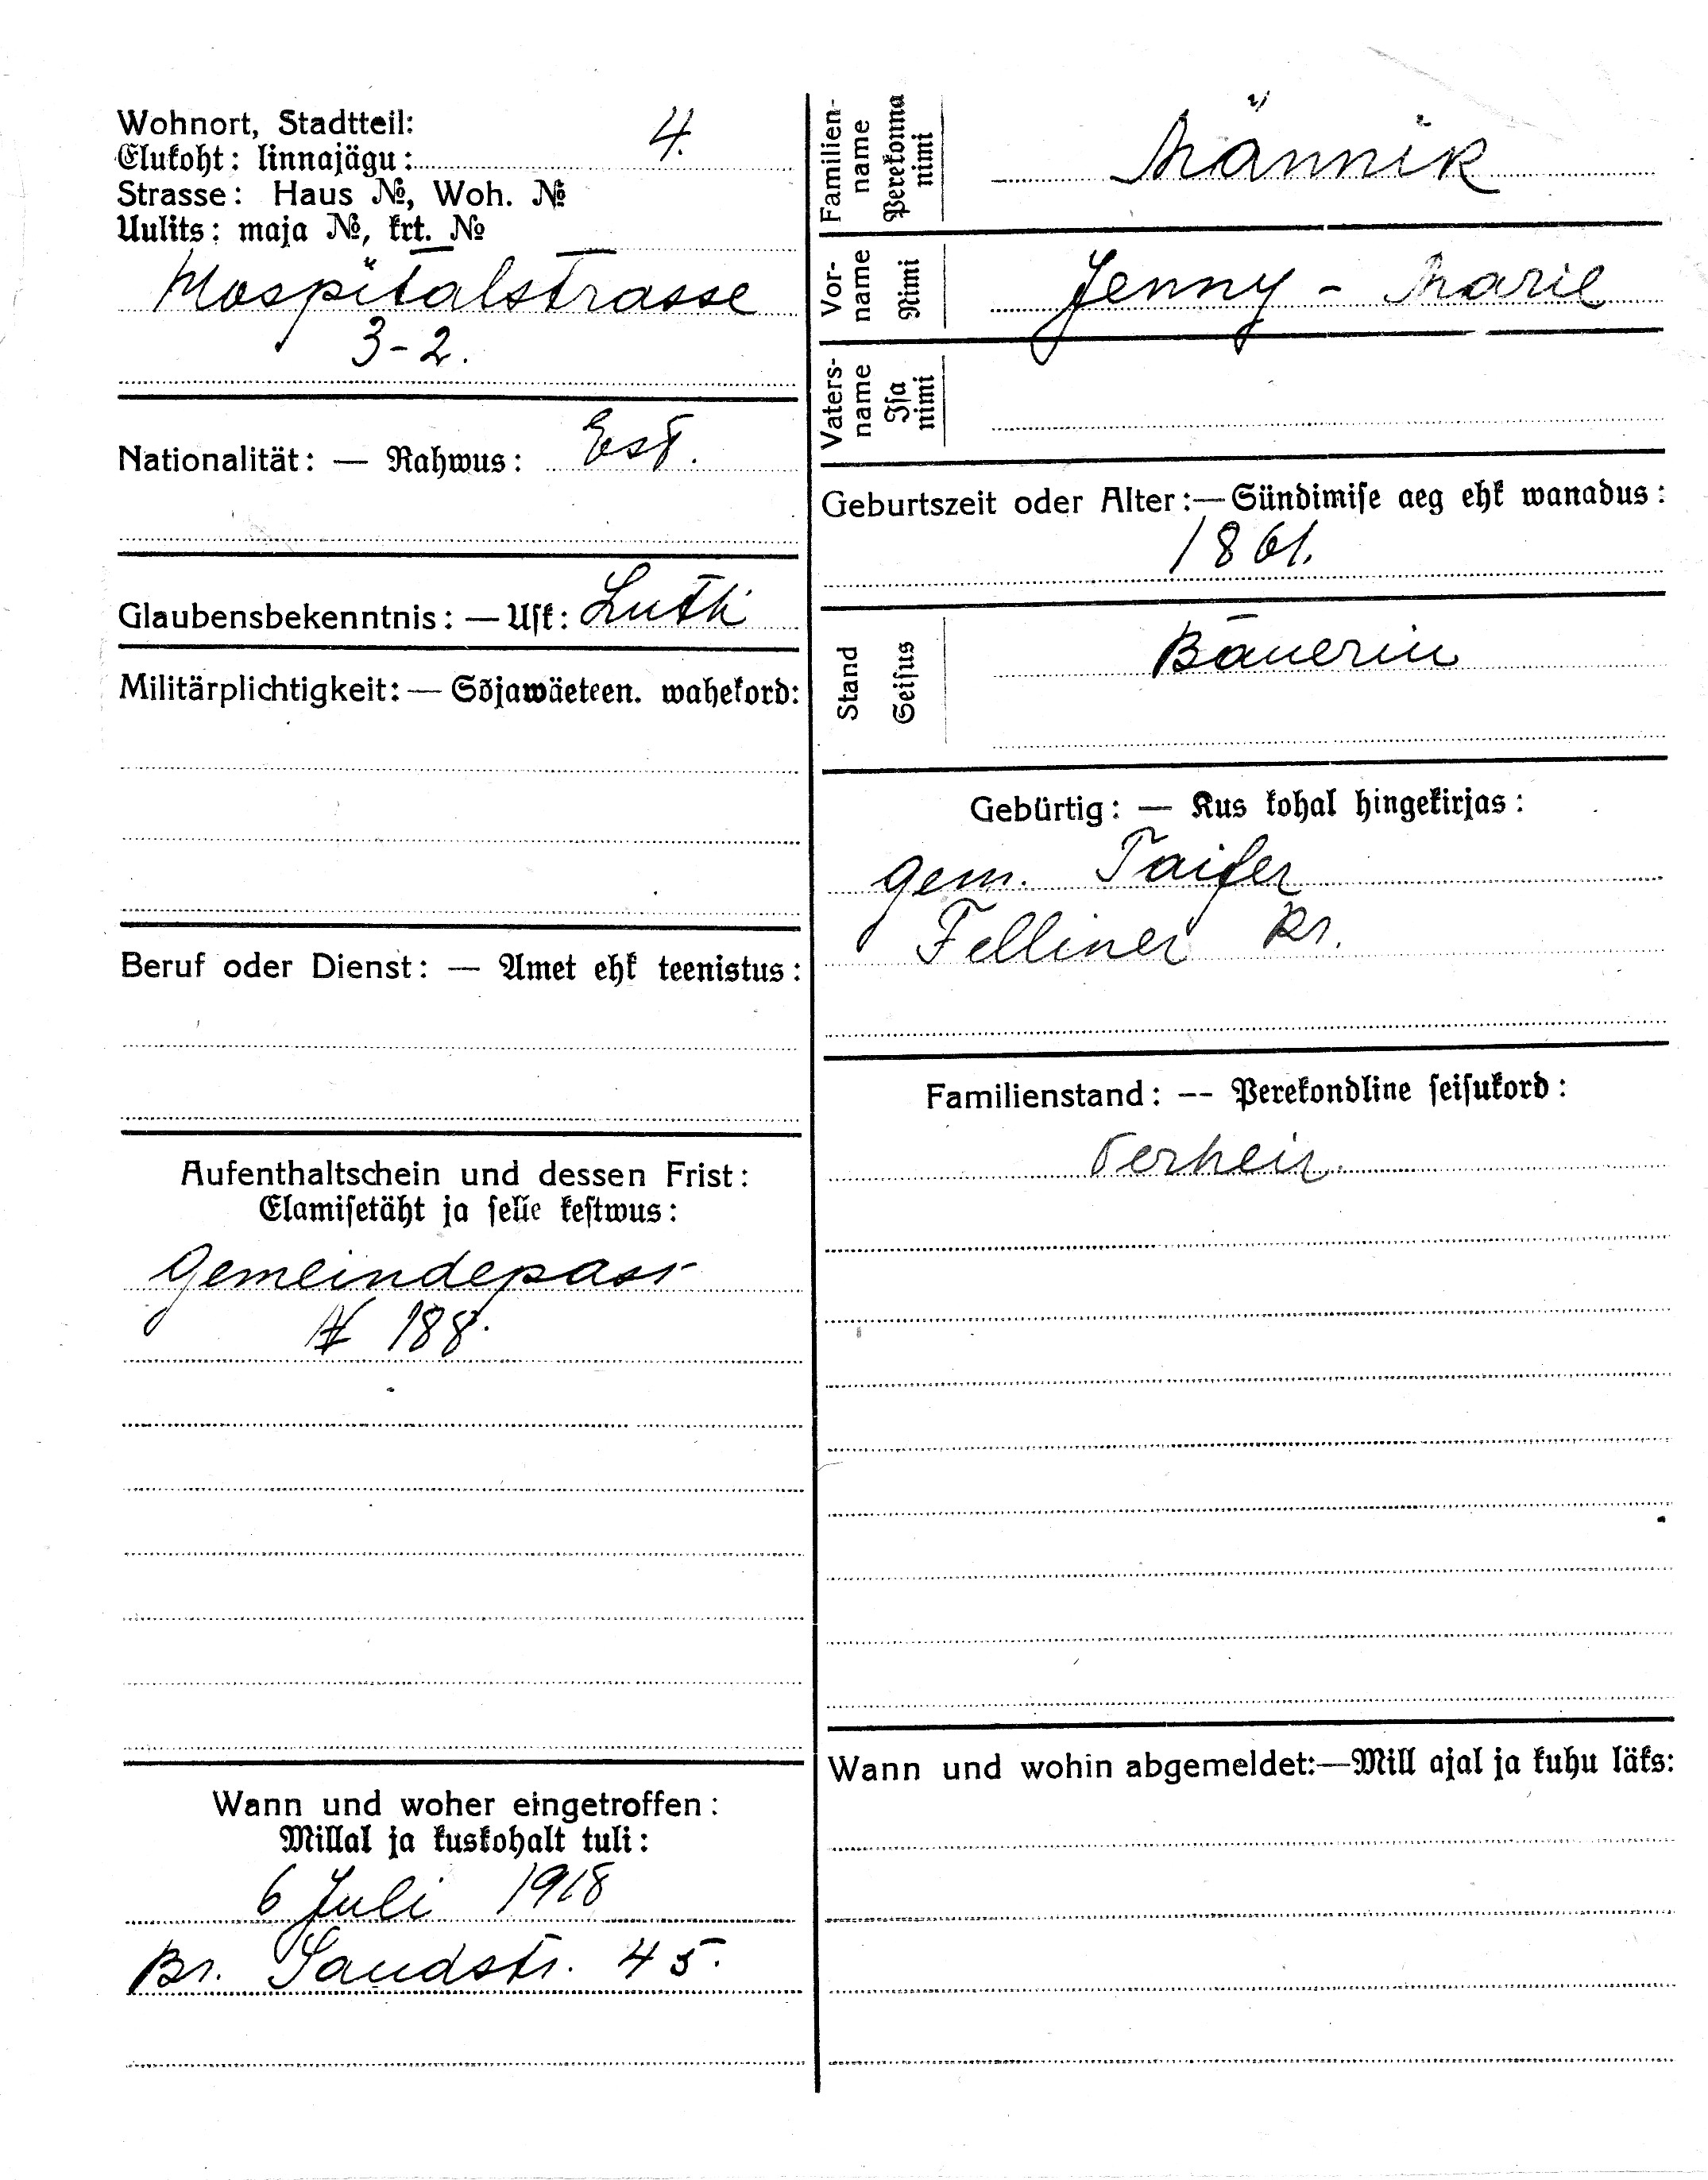 Wohnort, Stadtteil:
Elukoht: linnajägu: 4.
Strasse: Haus №, Woh. №
Uulits: maja №, krt. №
Hospitalstrasse
3-2.
Nationalität: — Rahwus: Est.
Glaubensbekenntnis: — Usk: Luth
Militärplichtigkeit: — Sõjawäeteen. wahekord:
Beruf oder Dienst: — Amet ehk teenistus:
Aufenthaltschein und dessen Frist:
Elamisetäht ja selle kestwus:
Gemeindepass
№ 188.
Wann und woher eingetroffen:
Millal ja kuskohalt tuli:
6 Juli 1918
Br. Sandstr. 45.
Familien-
name
Perekonna
nimi
Männik
Vor-
name
Nimi
Jenny - Marie
Vaters-
name
Isa
nimi
Geburtszeit oder Alter: — Sündimise aeg ehk wanadus:
1861.
Stand
Seisus
Bäuerin
Gebürtig: — Kus kohal hingekirjas:
Gem. Taifer
Felliner Kr.
Familienstand: -- Perekondline seisukord:
Verheir.
Wann und wohin abgemeldet:—Mill ajal ja kuhu läks: